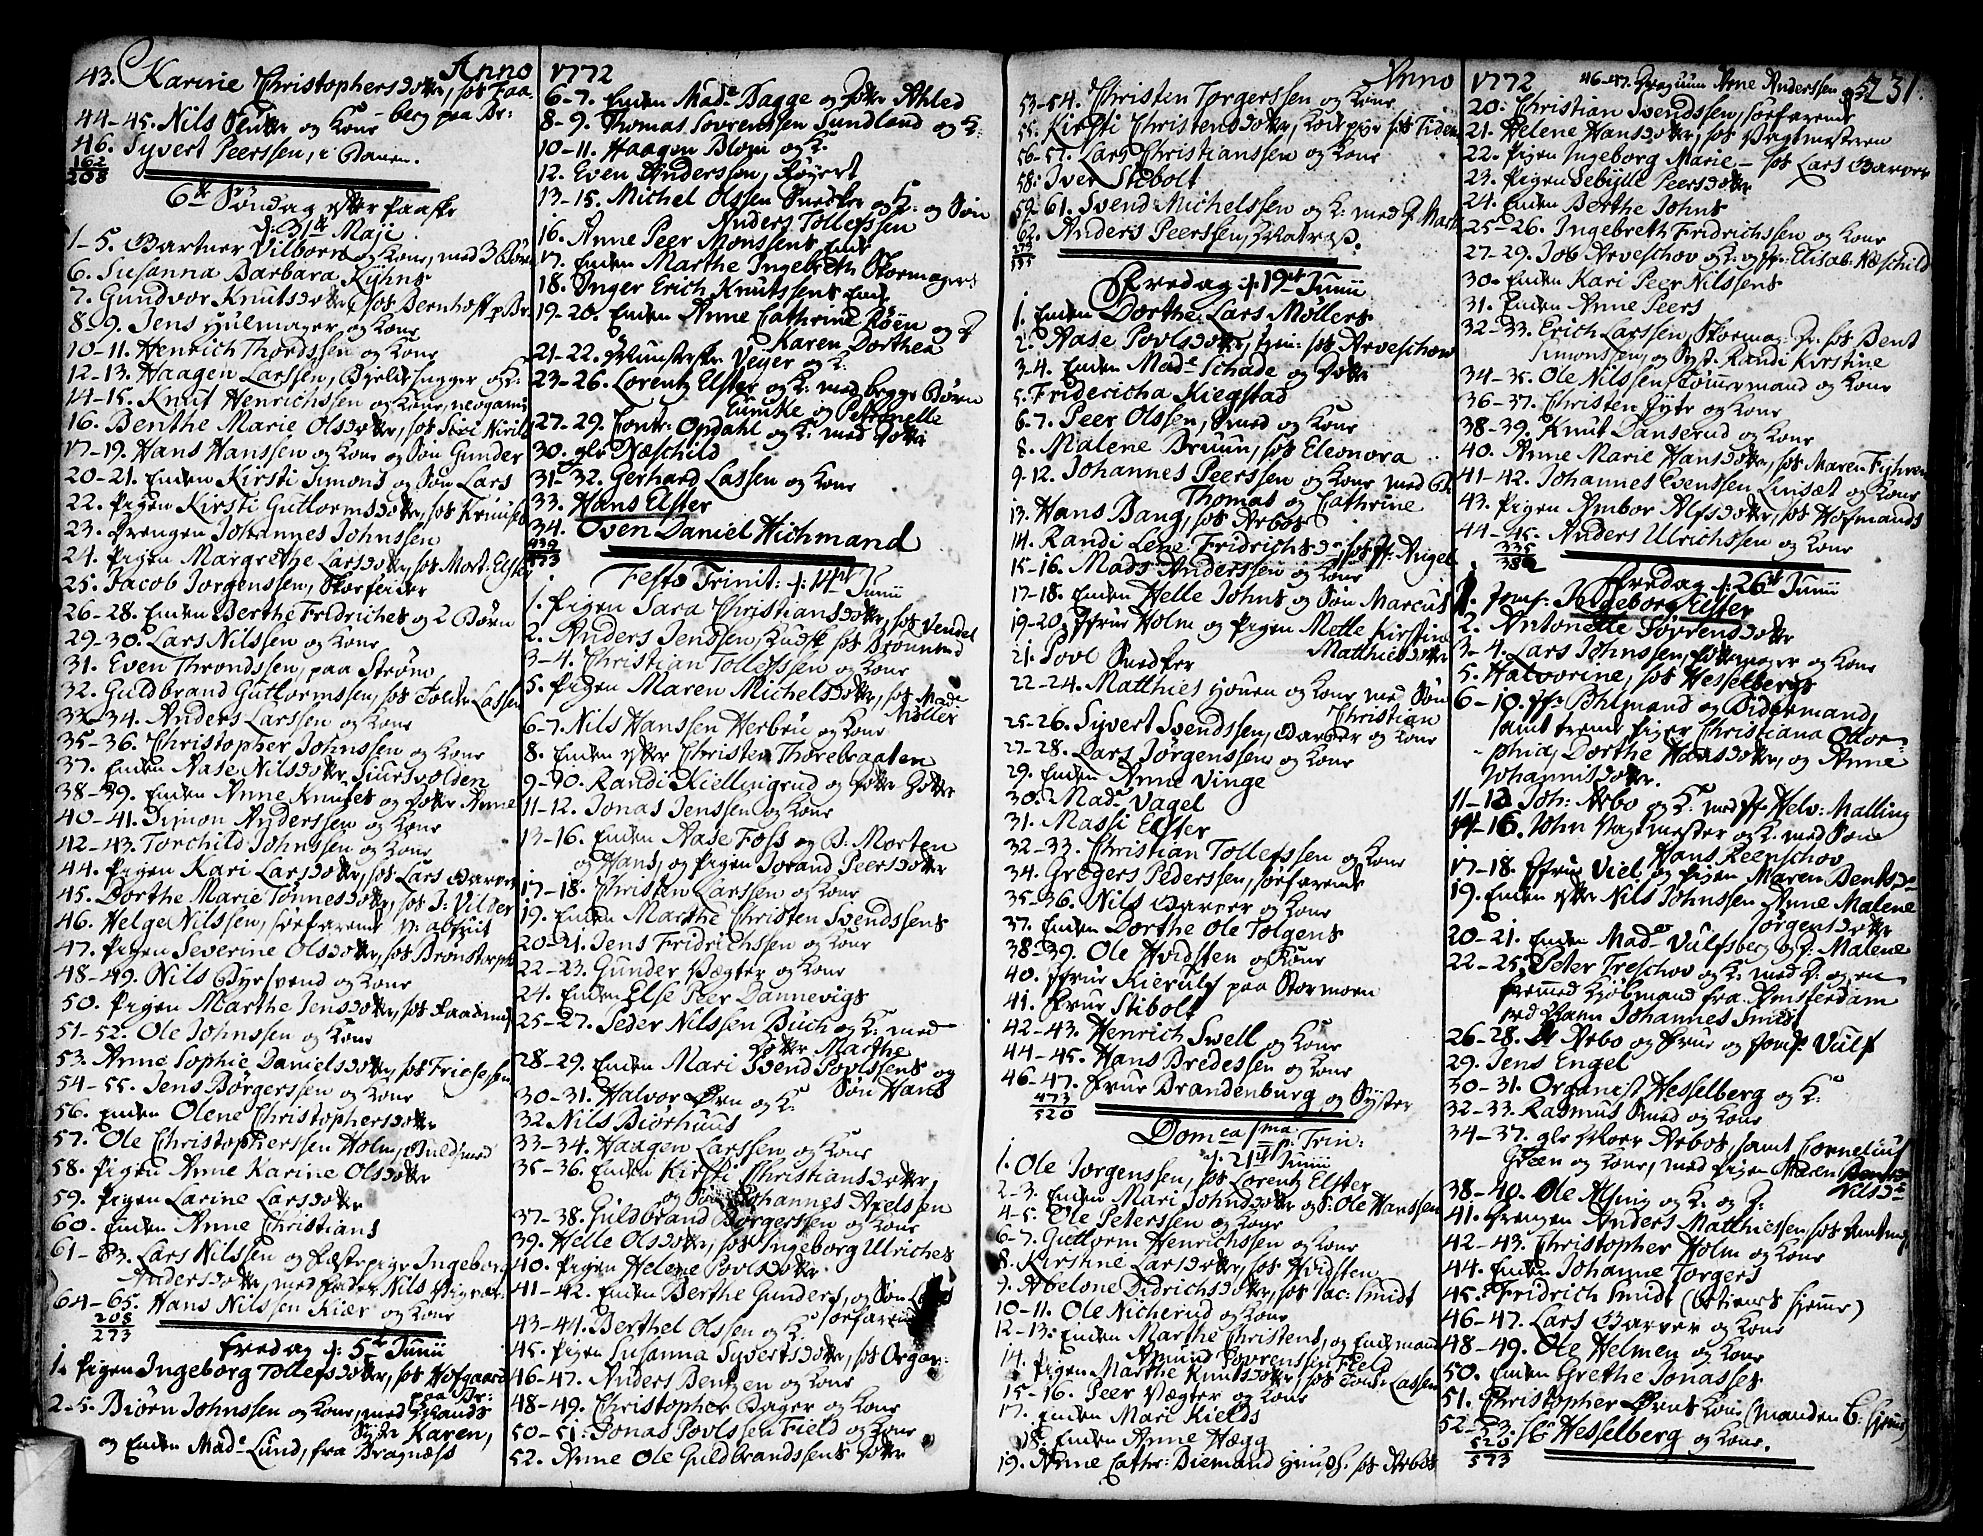 Anno
43. Karine Christophersdotter, hos Faa-
berg paa Br:
44-45. Nils Slutter og Kone
46. Syvert Peerssen, i Banen.
162
208
6te Søndag efter Paaske
d: 31te Maji
1-5. Gartner Vilborn og Kone, med 3 Børn
6. Susanna Barbara Kyhns
7. Gundvor Knutsdotter, hos Bernhoft p. Br.
8-9. Jens Hiulmager og Kone
10-11. Henrich Thordssen og Kone
12-13. Haagen Larssen, og K:
14-15. Knut Henrichssen og Kone, neogami
16. Benthe Marie Olsdotter, hos
17-19. Hans Hanssen og Kone og Søn Gunder
20-21. Enken Kirsti Simons og Søn Lars
22. Pigen Kirsti Guttormsdotter, hos
23. Drengen Johannes Johnssen
24. Pigen Margrethe Larsdotter, hos Mort: Elster
25. Jacob Jorgenssen, Skorfeier
26-28. Enken Berthe Fridriches og 2 Børn
29-30. Lars Nilssen og Kone
31. Even Throndssen, paa Strøm
32. Guldbrand Guttormssen, hos Lassen
33-34. Anders Larssen og Kone
35-36. Christopher Johnssen og Kone
37. Enken Aase Nilsdotter
38-39. Enken Anne Knutses og Dotter Anne
40-41. Simon Anderssen og Kone
42-43. Torchild Johnssen og Kone
44. Pigen Kari Larsdotter, hos Lars Garver
45. Dorthe Marie Tønnesdotter, hos J: Vilster
46. Helge Nilssen, søefarende
47. Pigen Severine Olsdotter, hos
48-49. Nils Byesvend og Kone
50. Pigen Marthe Jensdotter, hos
51-52. Ole Johnssen og Kone
53. Anne Sophie Danielsdotter, hos
54-55. Jens Børgerssen og Kone
56. Enken Olene Christophersdotter
57. Ole Christopherssen Holm, Guldsmed
58. Pigen Anne Karine Olsdotter
59. Pigen Larine Larsdotter
60. Enken Anne Christians
61-63. Lars Nilssen og Fæstepige Ingebor
Andersdotter, med Fader Nils
64-65. Hans Nilssen Kier og Kone
208
273
Fredag d: 5te Junii
1. Pigen Ingeborg Tollefsdotter, hos Hofgaard
paa Br:
2-5. Biørn Johnssen og Kone, med
Syster Karen,
og Enken Made Lund, fra Bragnæss
1772
6-7. Enken Made Bagge og Dotter Ahled
8-9. Thomas Sovrenssen Sundland og K:
10-11. Haagen Blom og K.
12. Even Anderssen, Røyert
13-15. Michel Olssen Snedker og K: og Søn
Anders Tollefssen
16. Anne Peer Monsens Enke
17. Enken Marthe Ingebreth Skormagers
18. Inger Erich Knutssens Enke
19-20. Enken Anne Cathrine Røen og D
Karen Dorthea
21-22. Veyer og K.
23-26. Lorentz Elster og K: med begge Børn
Eunike og Petronelle
27-29. Contr: Opdahl og K: med Dotter
30. Næschild
31-32. Gerhard Lassen og Kone
33. Hans Elster
34. Oven Daniel Hichmand
439
473
Festo Trinit: d: 14de Junii
1. Pigen Sara Christiansdotter, hos Vendel
2. Anders Jenssen, hos
3-4. Christian Tollefssen og Kone
5. Pigen Maren Michelsdotter, hos Made
Møller
6-7. Nils Hanssen Herbrú og Kone
8. Enken efter Christen Thorebraaten
9-10. Randi Kiellingrud og Dotter Gitte
11-12. Jonas Jenssen og Kone
13-16. Enken Aase Foss og B. Morten
og Hans, og Pigen Jorand Peersdotter
17-18. Christen Larssen og Kone
19. Enken Marthe Christen Svendssens
20-21. Jens Fridrichssen og Kone
22-23. Gunder Vægter og Kone
24. Enken Else Peer Dannevigs
25-27. Peder Nilssen Buch og K: med
Dotter Marthe
28-29. Enken Mari Svend Povlssens og
Søn Hans
30-31. Halvor Ørn og K.
32. Nils Biørhuus
33-34. Haagen Larssen og Kone
35-36. Enken Kirsti Christiansdotter,
og Søn Johannes Axelsen
37-38. Guldbrand Børgerssen og Kone
39. Helle Olsdotter, hos Ingeborg Ulriches
40. Pigen Helene Povlsdotter
41-42. Enken Berthe Gunders, og Søn
søefarende
43-44. Berthel Olssen og K:
45. Pigen Susanna Syvertsdotter, hos Organ:
46-47. Anders Bentzen og Kone
48-49. Christopher Bager og Kone
50-51. Jonas Povlssen Field og Kone
52. Anne Ole Guldbrandssens Dotter
Anno
53-54. Christen Torgerssen og Kone
55. Kirsti Christensdotter, hos
56-57. Lars Christianssen og Kone
58. Iver Stibolt
59-61. Svend Michelssen og K: med D. Marth
62. Anders Peerssen, Matros.
Fredag d: 19de Junii
1. Enken Dorthe Lars Møllers
2. Aase Povlsdotter, hos Arveschow
3-4. Enken Made Schade og Dotter
5. Fridericha Kiegstad
6-7. Peer Olssen, Smed og Kone
8. Malene Bruun, hos Eleonora
9-12. Johannes Peerssen og Kone med B.
Thomas og Cathrine
13. Hans Bang, hos Arboe
14. Randi Lene Fridrichsdr hos Angel
15-16. Mads Anderssen og Kone
17-18. Enken Helle Johns og Søn Marcus
19-20. Frue Holm og Pigen Mette Kirstine
Matthiesdotter
21. Povl Snedker
22-24. Matthies Houen og Kone med Søn
Christian
25-26. Syvert Svendssen, Garver og Kone
27-28. Lars Jørgenssen og Kone
29. Enken Anne Vinge
30. Made Vagel
31. Massi Elster
32-33. Christian Tollefssen og Kone
34. Gregers Pederssen, søefarende
35-36. Nils Garver og Kone
37. Enken Dorthe Ole Tolgens
38-39. Ole Hvidsten og Kone
40. Frue Kierulf paa Stormoen
41. Frue Stibolt
42-43. Henrich Swell og Kone
44-45. Hans Bredessen og Kone
46-47. Frue Brandenburg og Syster
473
520
Domca 1ma p. Trin:
d. 21de Junii
1. Ole Jorgenssen, hos Lorentz Elster
2-3. Enken Mari Johnsdotter og S. Ole Hanssen
4-5. Ole Peterssen og Kone
6-7. Guttorm Henrichssen og Kone
8. Kirstine Larsdotter, hos Hvidsten
9. Abelone Didrichsdotter, hos Jac: Smidt
10-11. Ole Nicherud og Kone
12-13. Enken Marthe Christens, og Enkemand
Amund Sovrenssen Field
14. Pigen Marthe Knutsdotter, hos Lassen
15-16. Peer Vægter og Kone
17. Enken Mari Kields
18. Enken Anne Hægg
19. Anne Cathr: Biemand hos Arboe
1772
46-47. Anne Anderssen
231.
20. Christian Svendssen, søefarende
21. Helene Hansdotter, hos Vagtmesteren
22. Pigen Ingeborg Marie - hos Lars Garver
23. Pigen Sebylle Peersdotter
24. Enken Berthe Johns
25-26. Ingebreth Fridrichssen og Kone
27-29. Job Arveschov og K. og Jfr: Elisab: Næschild
30. Enken Kari Peer Nilssens
31. Enken Anne Peers
32-33. Erich Larssen, Skormag: Dr. hos Bent
Simonssen, og Syst. Randi Kirstine
34-35. Ole Nilssen, Tømmermand og Kone
36-37. Christen Jyte og Kone
38-39. Knut Danserud og Kone
40. Anne Marie Hansdotter, hos Maren
41-42. Johannes Evenssen Linsæt og Kone
43. Pigen Ambor Alfsdotter, hos Hofmands
44-45. Anders Ulrichssen og Kone
335
380
Fredag d: 26de Junii
1. Jomf. Ingeborg Elster
2. Antonette Sovrensdotter
3-4. Lars Johnssen, og Kone
5. Halvorine, hos Hesselbergs
6-10. Pihlmand og Bidermand,
samt trende Piger Christiana Ottor-
phia, Dorthe Hansdotter, og Anne
Johannisdotter.
11-13. Joh: Arbo og K. med Jfr Helv: Malling
14-16. John Vagtmester og K. med Søn
Hans Reenschov
17-18. Frue Viel og Pigen Maren Bentsdr
19. Enken efter Nils Johnssen Anne Malene
Jørgensdotter
20-21. Enken Made Vulfsberg og D. Malene
22-25. Peter Treschov og K: med S. og en
fremmed Kiøbmand fra Amsterdam
ved Navn Johannes Smidt
26-28. Arbo og Frue og Jomf. Vulf
29. Jens Engel
30-31. Organist Hesselberg og K:
32-33. Rasmus Smed og Kone
34-37. Arboe, samt Cornelius
Green og Kone, med Pigen Maren
Nilsdr
38-40. Ole Alsing og K. og D.
41. Drengen Anders Matthiessen, hos
42-43. Christopher Holm og Kone
44. Enken Johanne Torgers
45. Fridrich Smidt (betienes hjeme)
46-47. Lars Garver og Kone
48-49. Ole Helmen og Kone
50. Enken Grethe Jonasses
51. Christopher Ørns Kone (Manden b: hjeme)
52-53. Hesselberg og Kone.
520
573